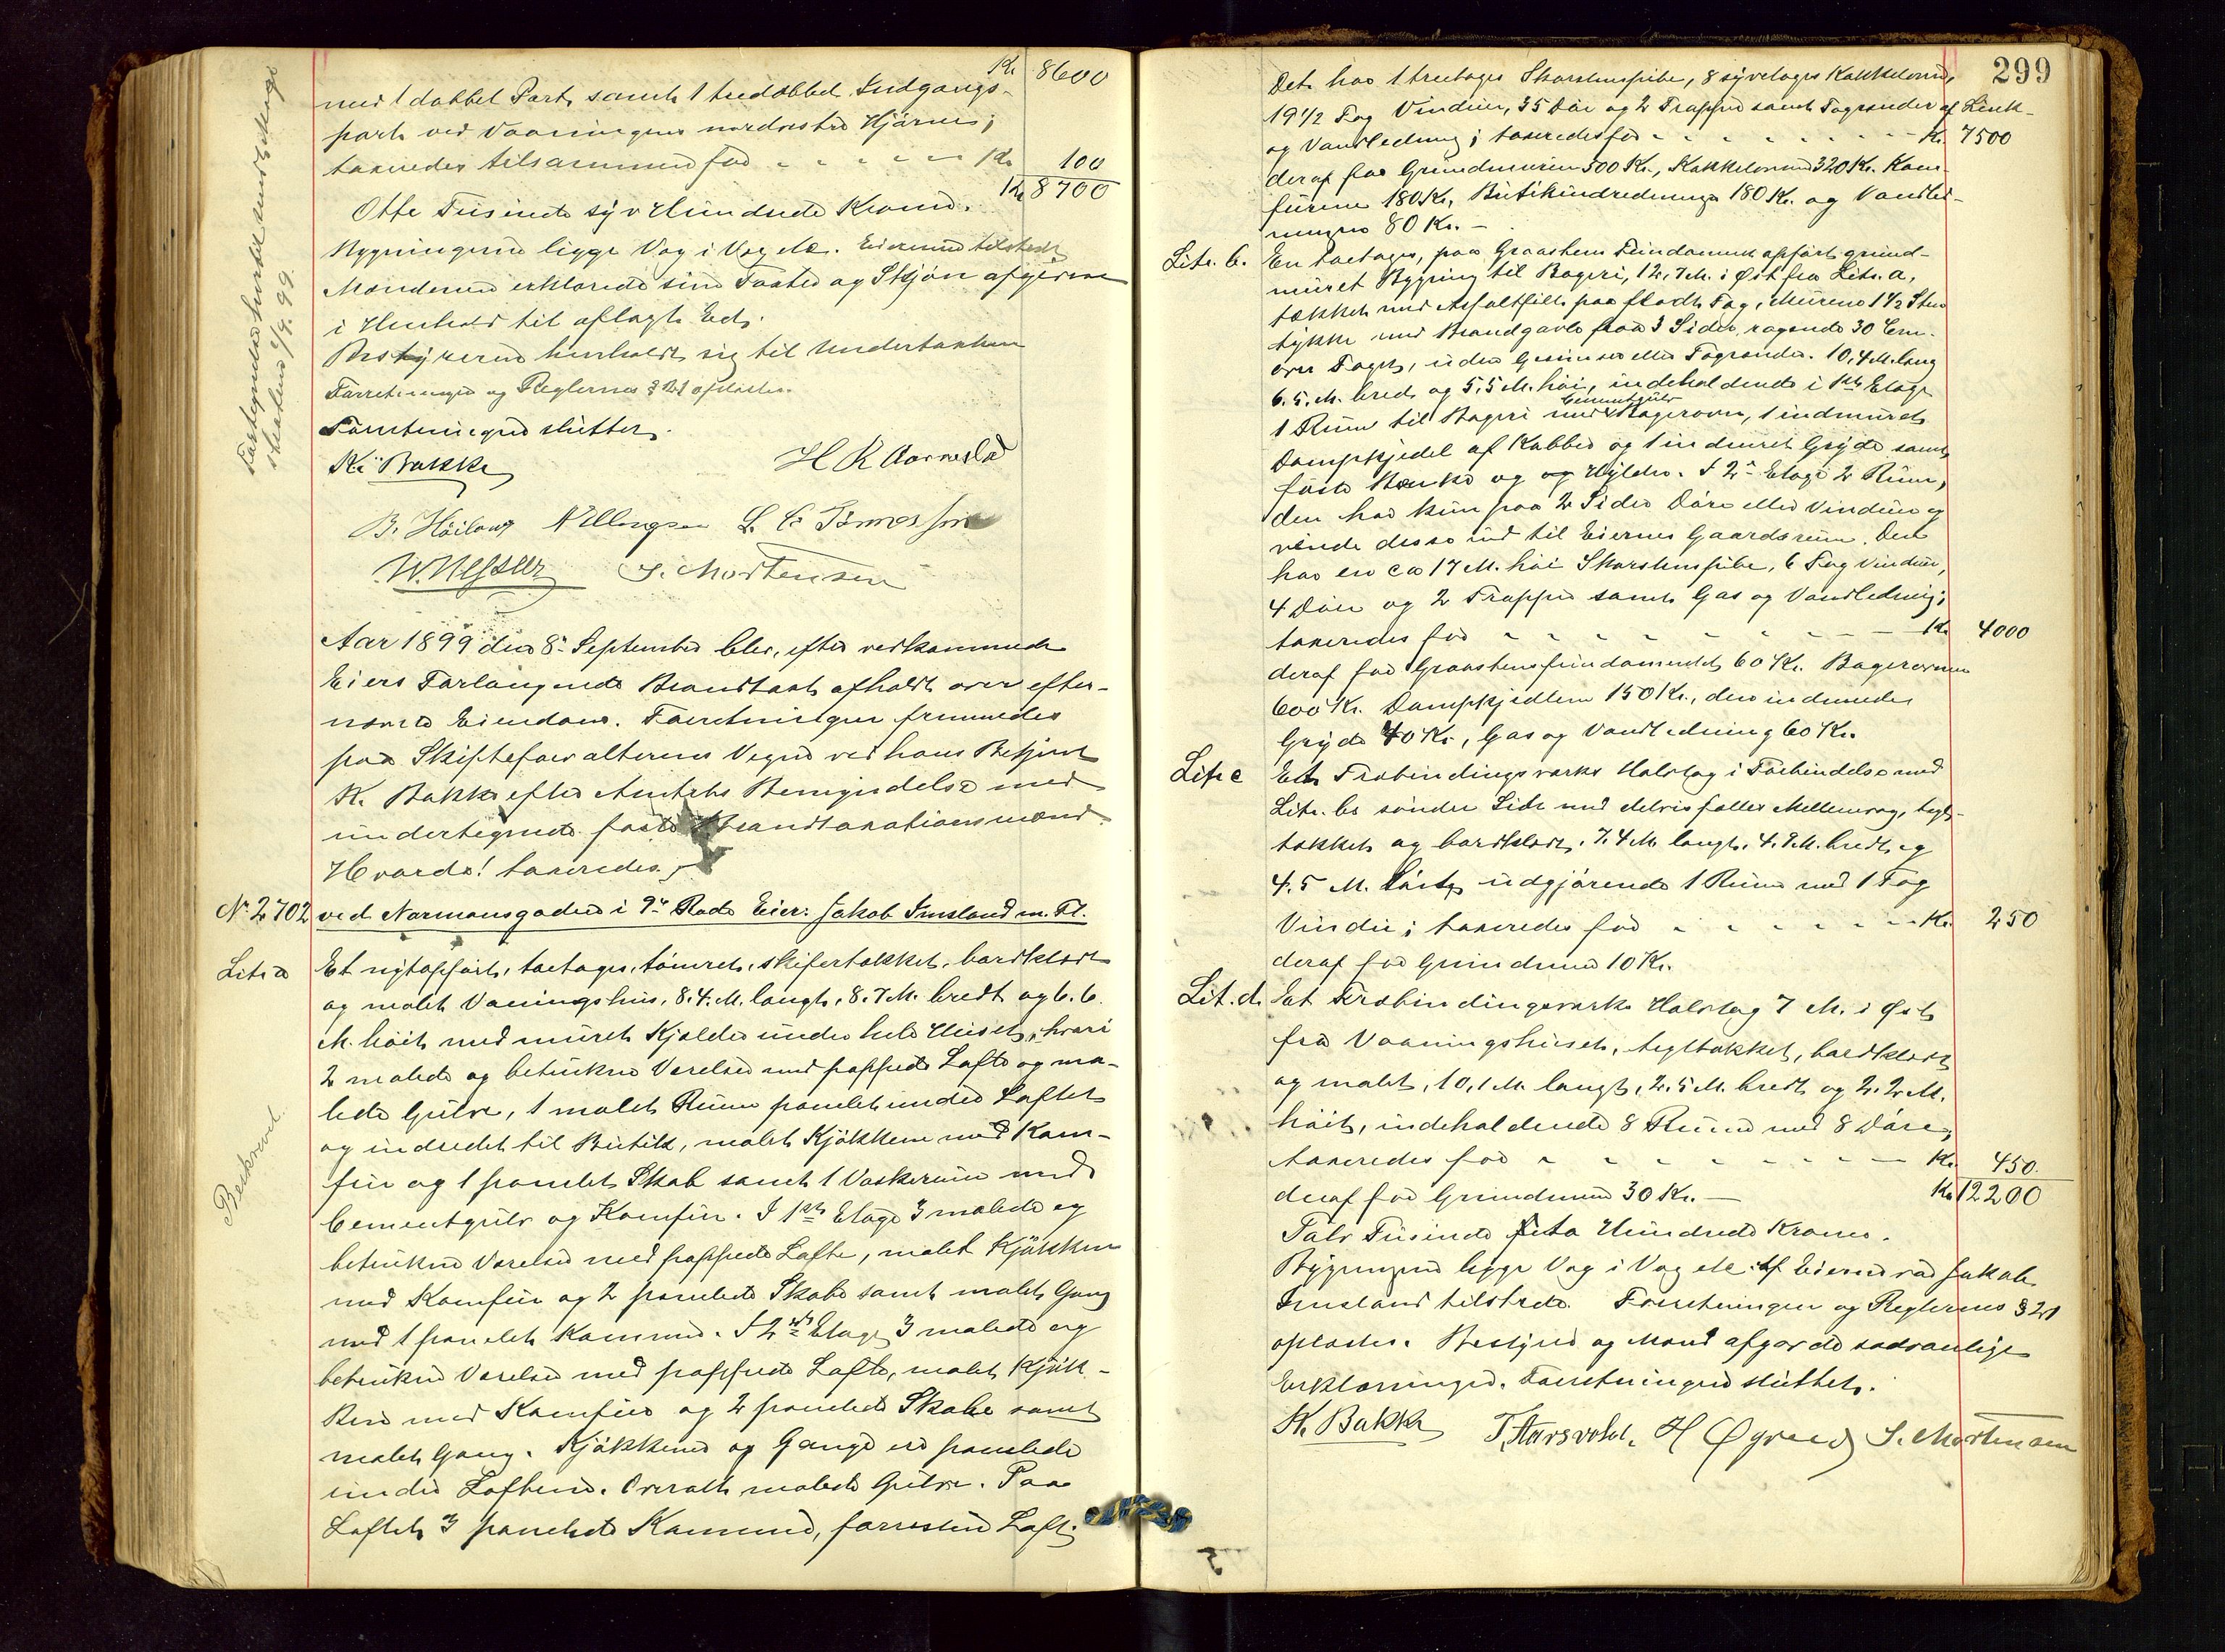 Kr. 8600
med 1 dobbel Port, samt 1 tredobbel Indgangs-
port ved Vaaningens nordvestre Hjørne;
taxeredes tilsammen for - - - - - Kr. 100
Kr. 8700
Otte Tusinde syv Hundrede Kroner.
Bygningerne ligge Vag i Vag No. Eieren tilstede
Mændene erklærede sine Taxter og Skjøn afgivne
i Henhold til aflagt Ed.
Bestyreren henholdt sig til Undertaxten
Forretningen og Reglernes § 21 oplæstes.
Forretningen sluttet.
K. Bakke H R Aarrestad
B. Høiland N Ellingsen L. C. Tønnessen
W. Nessler S. Mortensen
Aar 1899 den 8de September blev, efter vedkommende
Eiers Forlangende Brandtaxt afholdt over efter-
nævnte Eiendom. Forretningen fremmedes
paa Skifteforvalterens Vegne ved hans Betjent
K. Bakke efter Amtets Bemyndigelse med
undertegnede faste Brandtaxationsmænd.
Hvorda! taxeredes
No 2702 ved Normansgaden i 9de Rode Eier: Jakob Imsland m. Fl.
Litr a Et nyt opført, toetages, tømret, skifertækket, bordklædt
og malet Vaaningshus, 8.4. M. langt, 8.7 M. bredt og 6.6.
M. høit med muret Kjælder under hele Huset, hvori
2 malede og betrukne Værelser med pappede Lofte og ma-
lede Gulve, 1 malet Rum panelet under Loftet
og indredet til Butik, malet Kjøkken med Kom-
fur og 1 panelet Skab samt 1 Vaskerum med
Cementgulv og Komfur. I 1ste Etage 3 malede og
betrukne Værelser med pappede Lofte, malet Kjøkken
med Komfur og 2 panelede Skabe samt malet Gang
med 1 panelet Kammer. I 2den Etage 3 malede og
betrukne Værelser med pappede Lofte, malet Kjøk-
ken med Komfur og 2 panelede Skabe samt
malet Gang. Kjøkkener og Gange er panelede
under Loftene. Overalt malede Gulve. Paa
Loftet 3 panelede Kammere, forresten Loft.
Beskrevet
299
Det har 1 treetages Skorstenspibe, 8 syvetages Kakkelovne,
19 1/2 Fag Vinduer, 35 Døre og 2 Trapper samt Tagrender af Zink-
og Vandledning; taxeredes for - - - - - Kr. 7500
deraf for Grundmuren 500 Kr., Kakkelovne 320 Kr. Kom-
furene 180 Kr., Butikindredningen 180 Kr. og Vandled-
ningen 80 Kr. -
Litr. b. En toetages, paa Graastens Fundament opført grund-
muret Bygning til Bageri, 12,7 M. i Øst fra Litr. a,
tækket med Asfaltfilt paa fladt Tag, Murene 1 1/2 Sten
tykke med Brandgavle paa 3 Sider, ragende 30 Cm.
over Taget, uden Gesimser eller Tagrender. 10,4 M. lang
6.5. M. bred og 5,5 M. høi, indeholdende i 1ste Etage
Cementgulv
1 Rum til Bageri med Bagerovn, 1 indmuret
Dampkjedel af Kobber og 1 indmuret Gryde samt
faste Bænke og og Hylder. I 2den Etage 2 Rum,
den har kun paa 2 Sider Døre eller Vinduer og
vende disse ind til Eierens Gaardsrum. Den
har en ca 17 M. høi Skorstenspibe, 6 Fag Vinduer,
4 Døre og 2 Trapper samt Gas og Vandledning;
taxeredes for - - - - - - - Kr. 4000
deraf for Graastensfundamentet 60 Kr. Bagerovnen
600 Kr. Dampkjedlen 150 Kr., den indmurede
Gryde 40 Kr., Gas og Vandledning 60 Kr.
Litr c Et Træbindingsværks Halvtag i Forbindelse med
Litr. bs søndre Side med delvis fælles Mellemvæg, tegl-
tækket og bordklædt, 7.4 M. langt, 4.9 M. bredt og
4.5 M. høit, udgjørende 1 Rum med 1 Fag
Vindu; taxeredes for - - - - - - Kr. 250
deraf for Grundmur 10 Kr.
Lit. d. Et Træbindingsværks Halvtag 7 M. i Øst
fra Vaaningshuset, tegltækket, bordklædt
og malet, 10,1 M. langt, 2.5 M. bredt og 2.2 M.
høit, indeholdende 8 Rum med 8 Døre;
taxeredes for - - - - - - - Kr. 450.
deraf for Grundmur 30 Kr. - Kr 12200
Tolv Tusinde to Hundrede Kroner.
Bygningerne ligge Vag i Vag No. Af Eierne var Jakob
Imsland tilstede. Forretningen og Reglernes § 21
oplæstes. Bestyrer og Mænd afgav de sædvanlige
Erklæringer. Forretningen sluttet.
K. Bakke T. Aarsvold. H Øgreid S. Mortensen